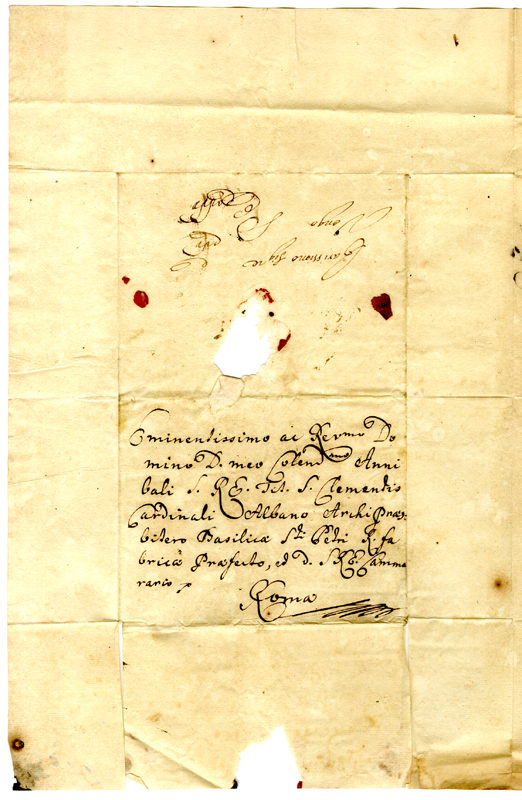 Eminentissimo ac Revmo Do
mino D. meo Colendmo Anni
bali S. R. E. Tit. S. Clementis
Cardinali Albano ArchiPræs
bitero Basilicæ Sti Petri R. fa
bricæ Præfecto, ed D. S.R.E. Camme
rario
Roma